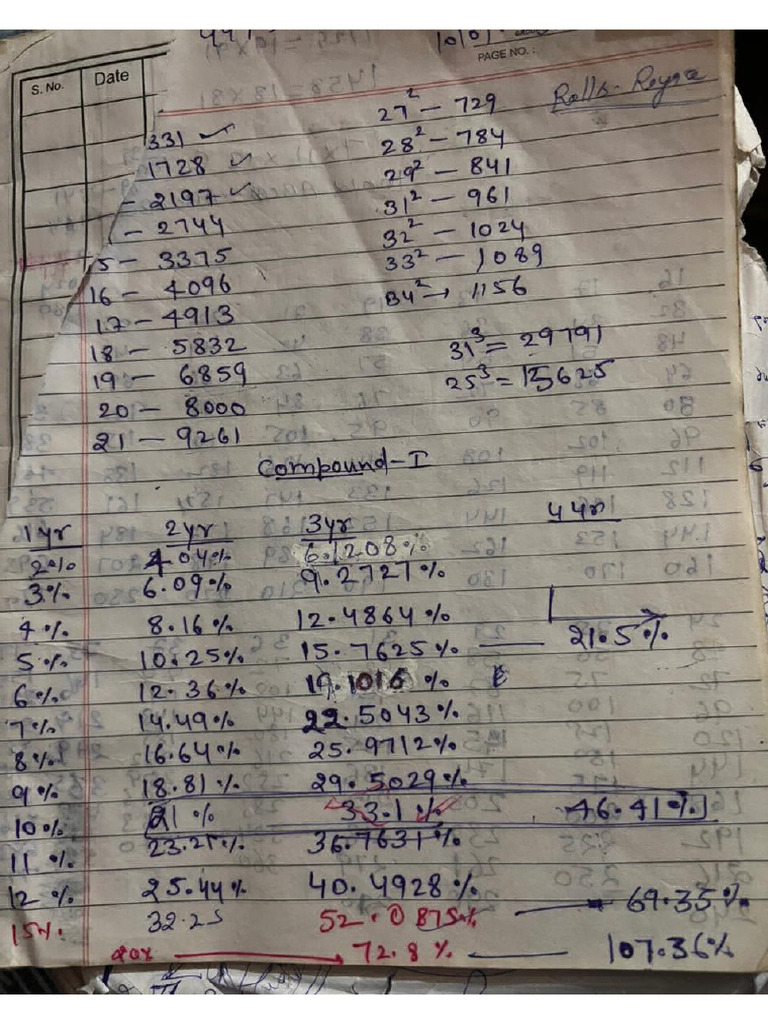 PAGE NO. :
S. No. Date
Rolls-Royce
331 ✓ 27² — 729
1728 ✓ 28² — 784
— 2197 ✓ 29² — 841
— 2744 31² — 961
5 — 3375 32² — 1024
16 — 4096 33² — 1089
17 — 4913 34² → 1156
18 — 5832 31³ = 29791
19 — 6859 25³ = 15625
20 — 8000
21 — 9261
Compound-I
1yr 2yr 3yr 4yr
2% 4.04% 6.1208%
3% 6.09% 9.2727%
4% 8.16% 12.4864%
5% 10.25% 15.7625% — 21.5%
6% 12.36% 19.1016%
7% 14.49% 22.5043%
8% 16.64% 25.9712%
9% 18.81% 29.5029%
10% 21% 33.1% 46.41%
11% 23.21% 36.7631%
12% 25.44% 40.4928%
15% 32.25 52.0875% → 69.35%
20% → 72.8% ← 107.36%